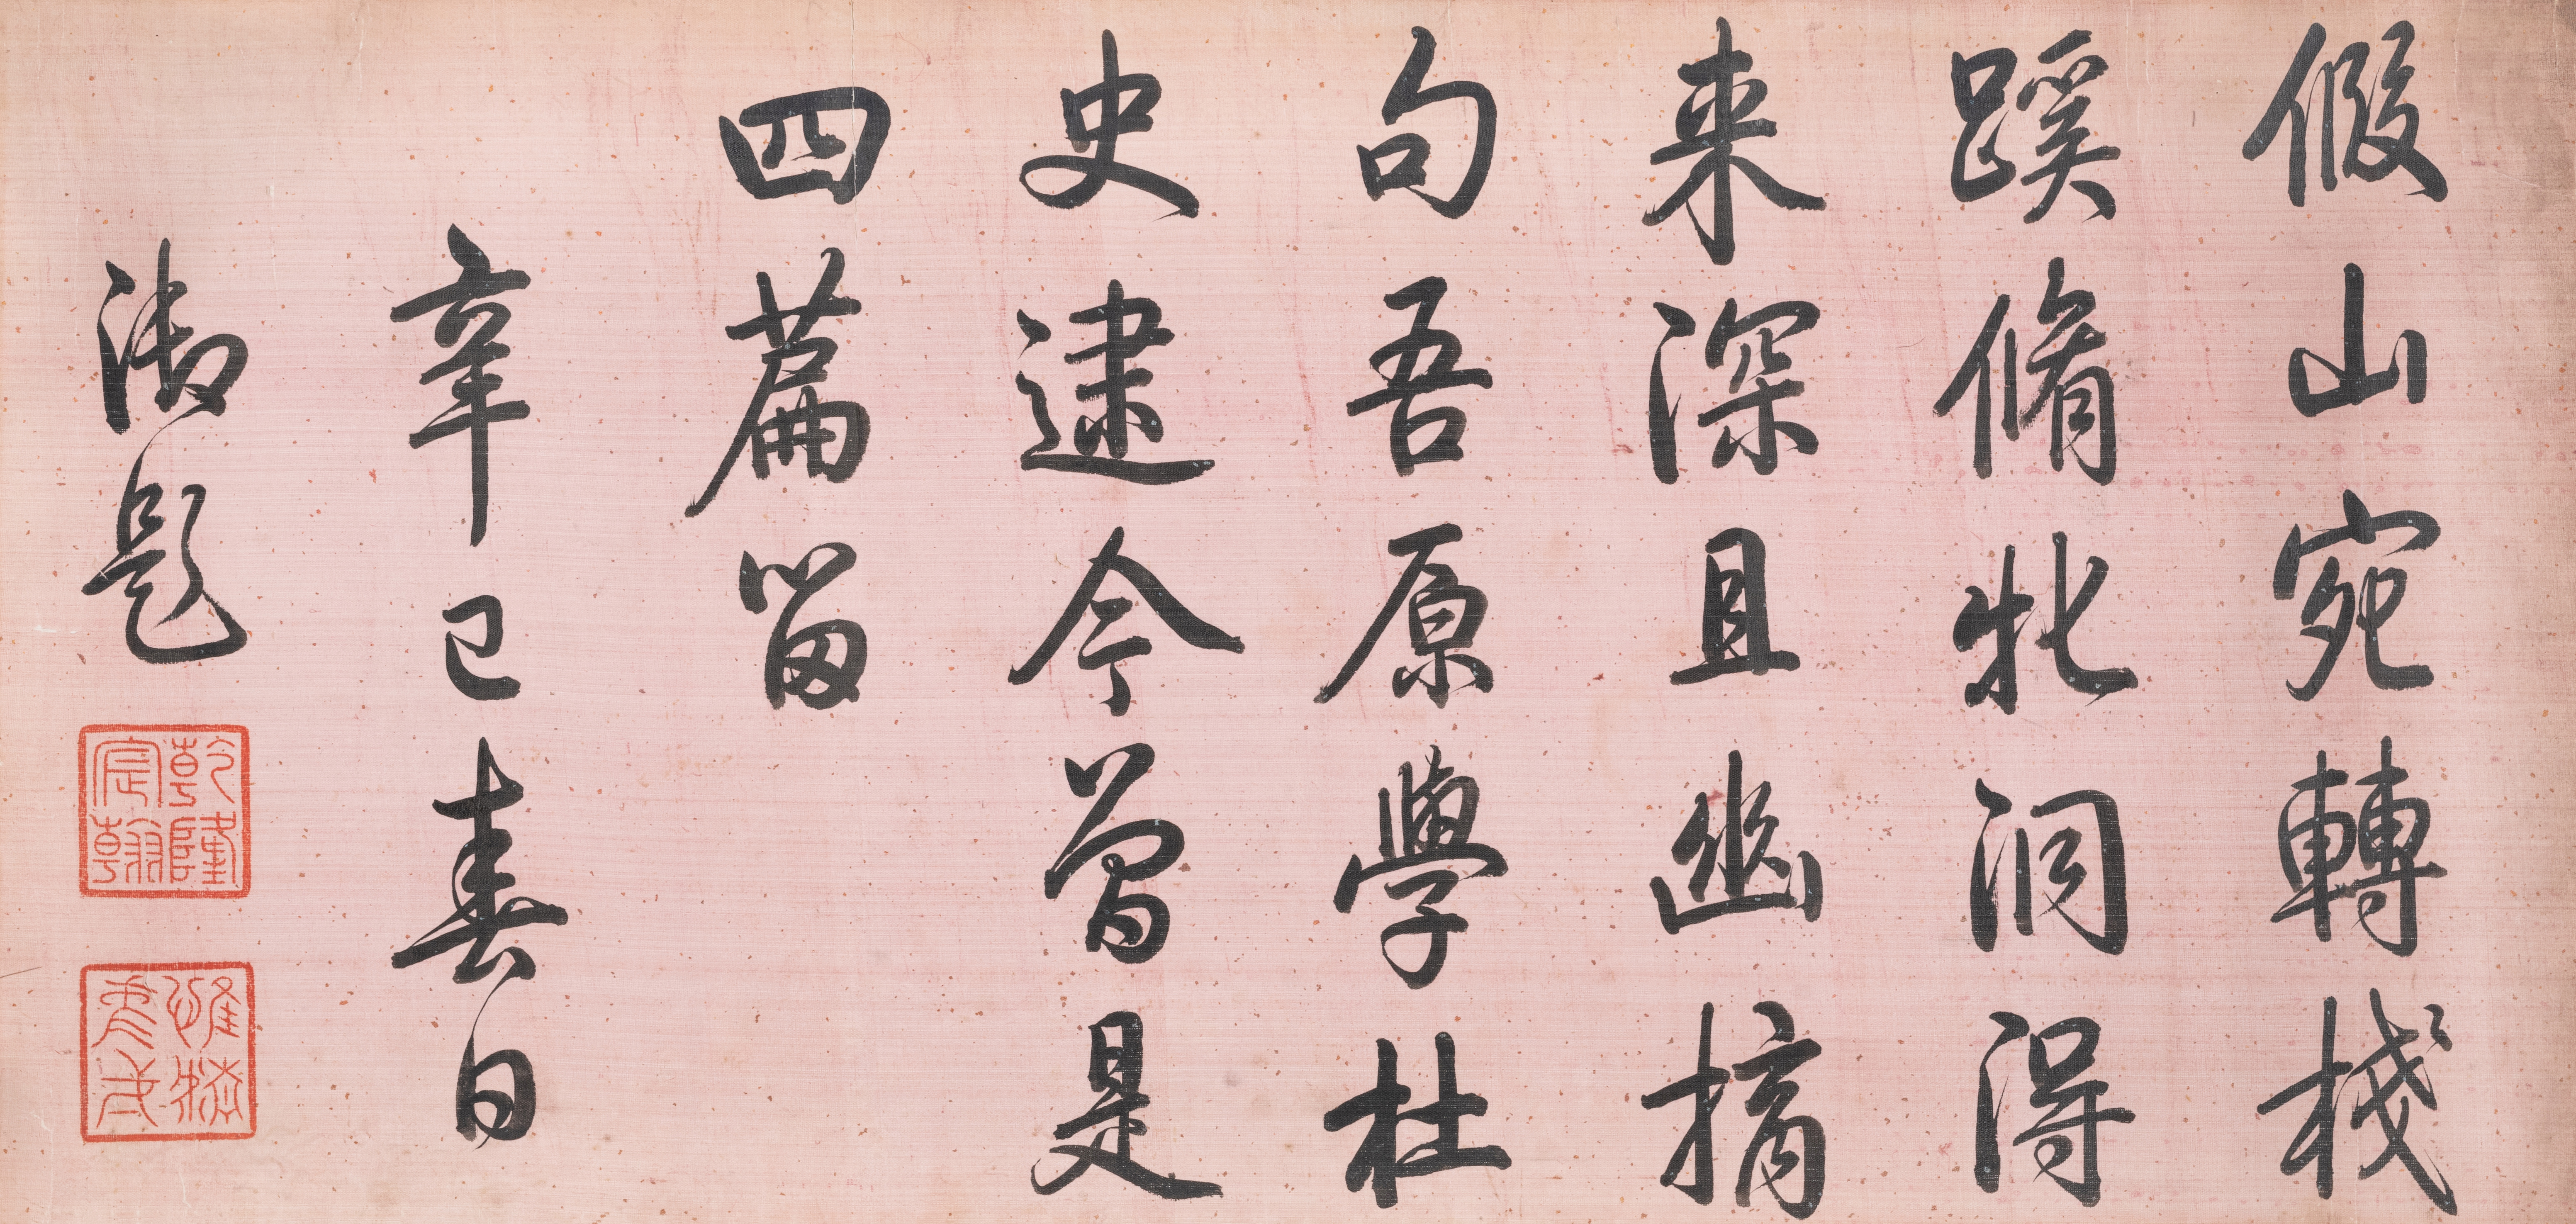 假山宛轉棧
蹊脩牝洞得
来深且幽摘
句吾原學杜
史逮今曾是
四篇留
辛巳春日
御題
乾隆宸翰
惟精惟一